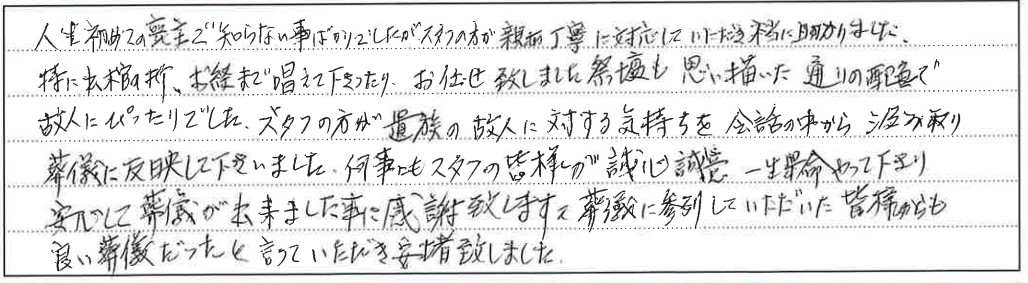 人生初めての喪主で知らない事ばかりでしたがスタッフの方が親切丁寧に対応していただき本当に助かりました。
特に出棺の折、お経まで唱えて下さったり、お任せ致しました祭壇も思い描いた通りの配色で
故人にぴったりでした。スタッフの方が遺族の故人に対する気持ちを会話の中から汲み取り
葬儀に反映して下さいました。何事にもスタッフの皆様が誠心誠意一生懸命やって下さり
安心して葬儀が出来ました事に感謝致します。葬儀に参列していただいた皆様からも
良い葬儀だったと言っていただき安堵致しました。